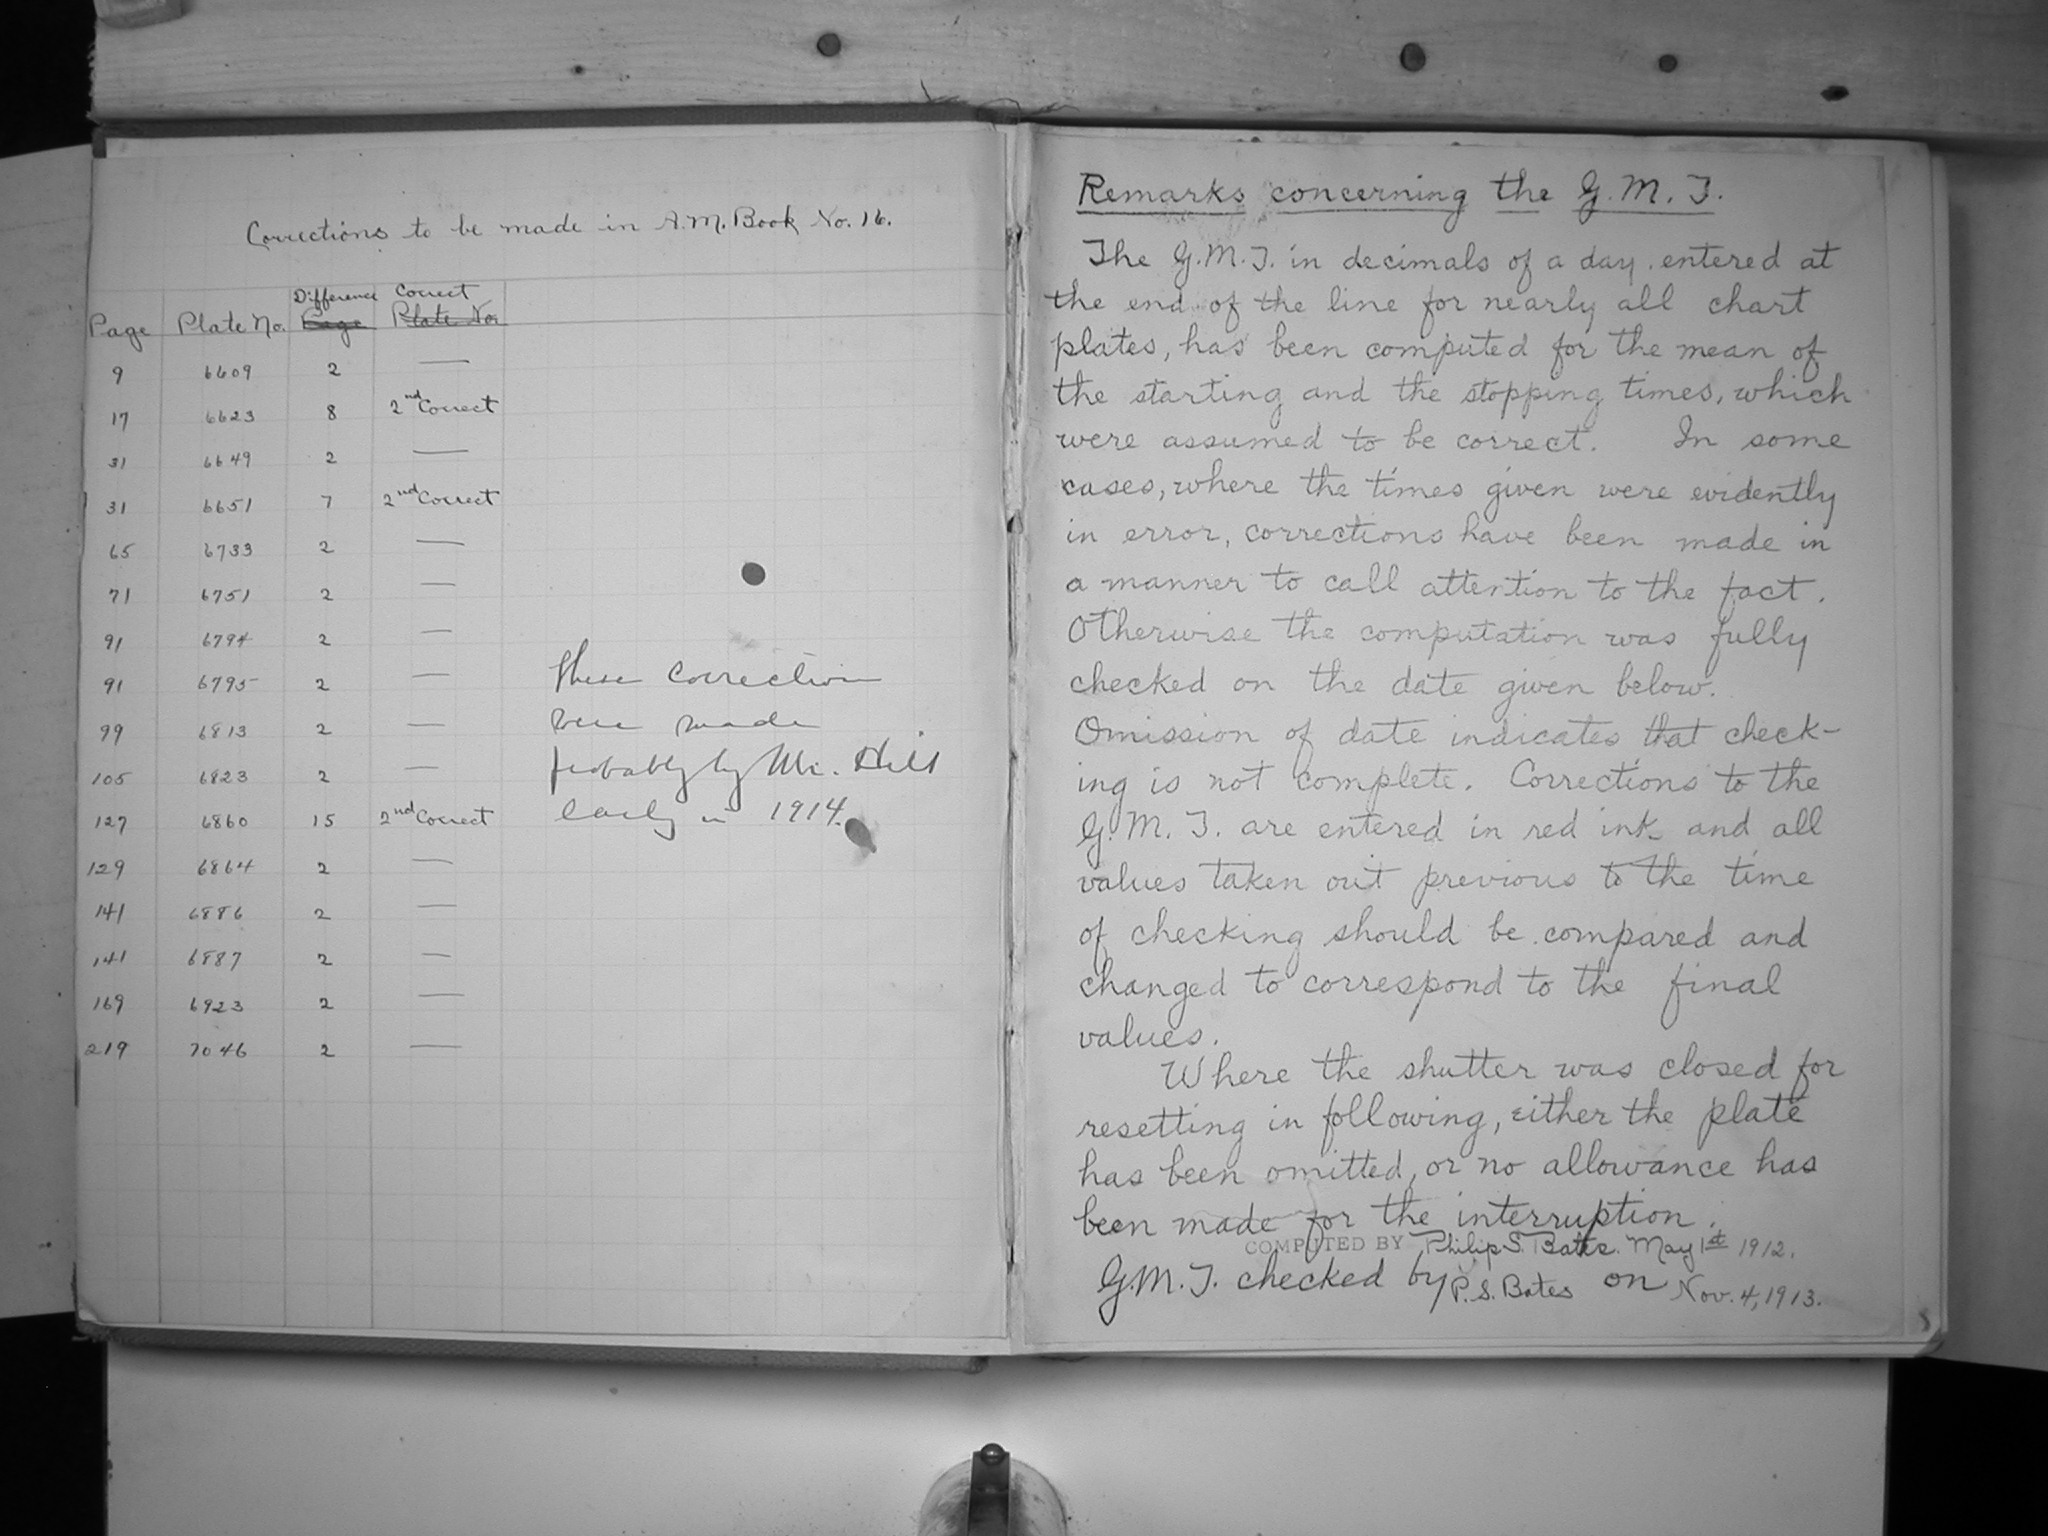 Corrections to be made in A.M. Book No. 16.
Page Plate No. Difference Page Correct Plate No.
9 6609 2 —
17 6623 8 2nd Correct
31 6649 2 —
31 6651 7 2nd Correct
65 6733 2 —
71 6751 2 —
91 6794 2 —
91 6795 2 —
99 6813 2 —
105 6823 2 —
127 6860 15 2nd Correct
129 6864 2 —
141 6886 2 —
141 6887 2 —
169 6923 2 —
219 7046 2 —
These correction
were made
probably by Mr. Hill
early in 1914.
Remarks concerning the G.M.T.
The G.M.T. in decimals of a day entered at
the end of the line for nearly all chart
plates, has been computed for the mean of
the starting and the stopping times, which
were assumed to be correct. In some
cases, where the times given were evidently
in error, corrections have been made in
a manner to call attention to the fact.
Otherwise the computation was fully
checked on the date given below.
Omission of date indicates that check-
ing is not complete. Corrections to the
G.M.T. are entered in red ink and all
values taken out previous to the time
of checking should be compared and
changed to correspond to the final
values.
Where the shutter was closed for
resetting in following, either the plate
has been omitted, or no allowance has
been made for the interruption.
COMPUTED BY Philip S. Bates. May 1st 1912.
G.M.T. checked by P.S. Bates on Nov. 4, 1913.